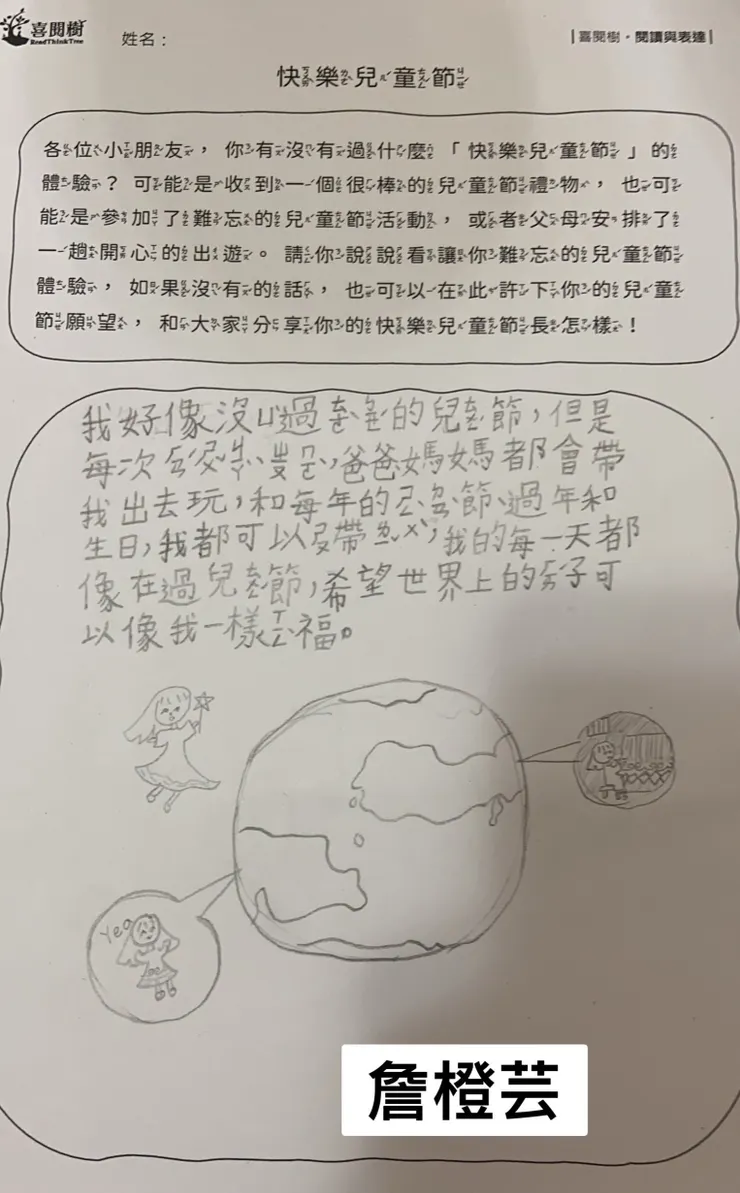 喜閱樹
ReadThinkTree
姓名：
|喜閱樹・閱讀與表達|
快樂兒童節
各位小朋友，你有沒有過什麼「快樂兒童節」的
體驗？可能是收到一個很棒的兒童節禮物，也可
能是參加了難忘的兒童節活動，或者父母安排了
一趟開心的出遊。請你說說看讓你難忘的兒童節
體驗，如果沒有的話，也可以在此許下你的兒童
節願望，和大家分享你的快樂兒童節長怎樣！
我好像沒過的兒節，但是
每次，爸爸媽媽都會帶
我出去玩，和每年的節、過年和
生日，我都可以帶，我的每一天都
像在過兒節，希望世界上的子可
以像我一樣ㄒㄧㄥ福。
Yeo
詹橙芸